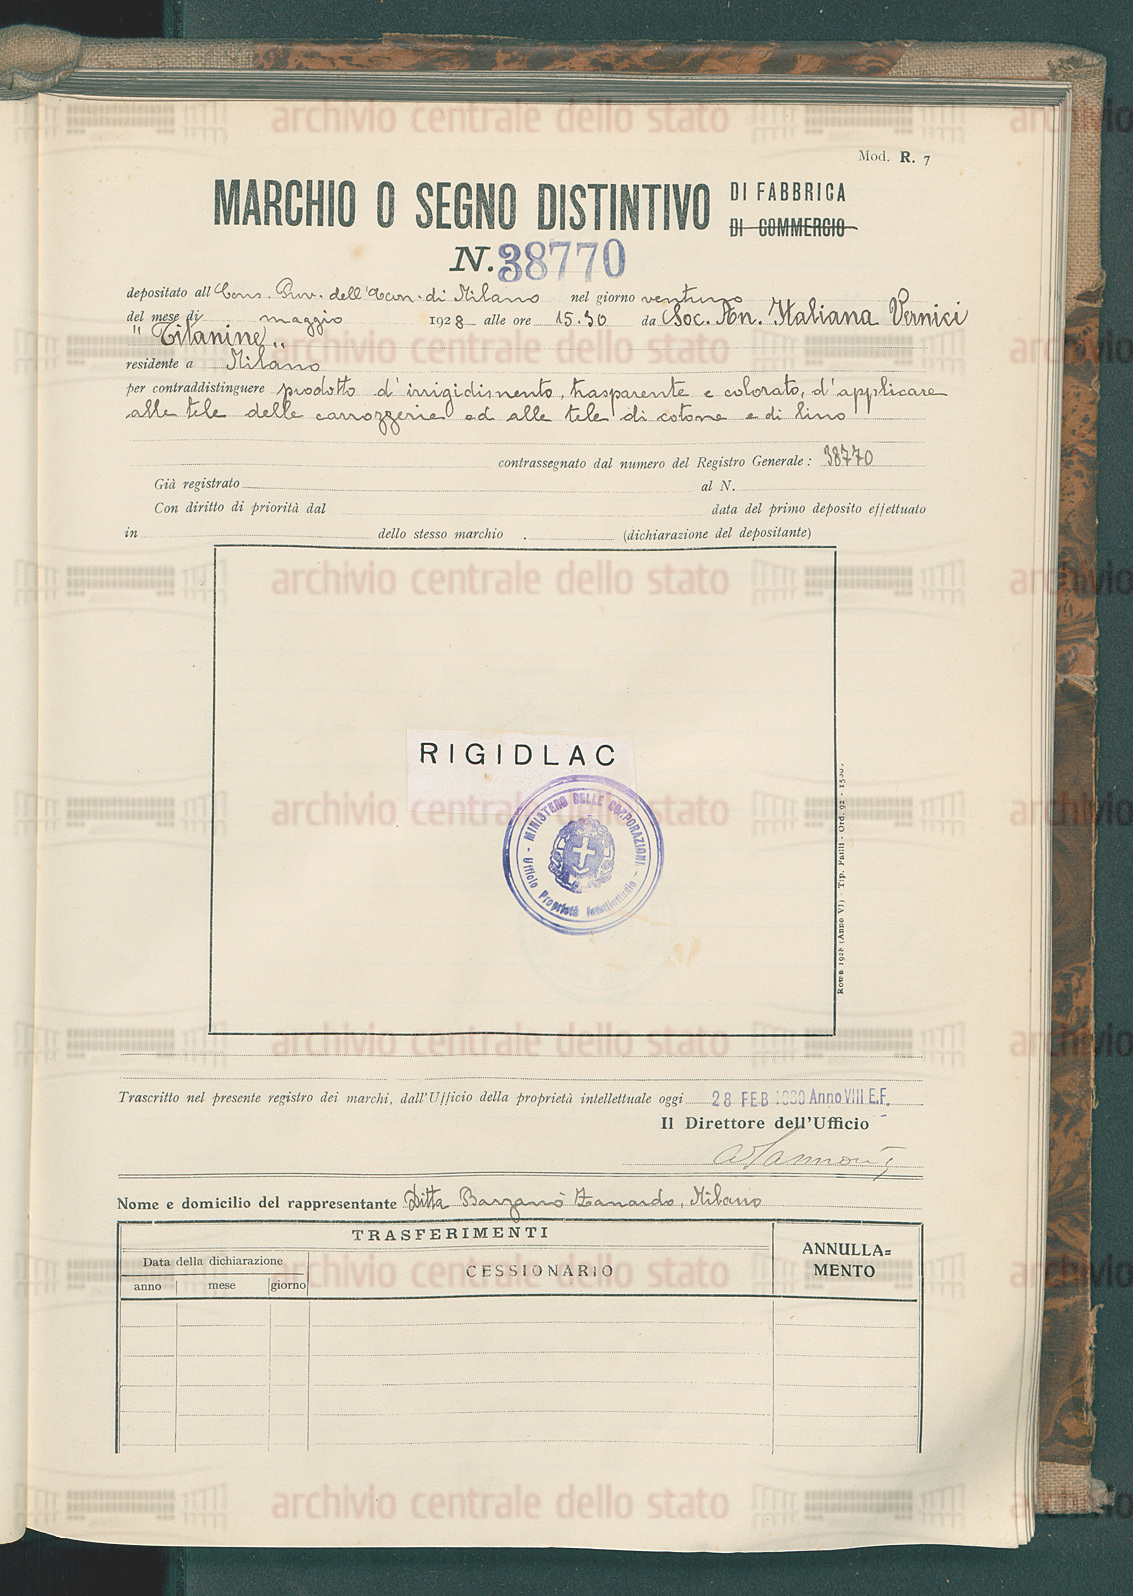 Mod. R. 7
MARCHIO O SEGNO DISTINTIVO DI FABBRICA
DI COMMERCIO
N. 38770
depositato all Cons. Prov. dell'Econ. di Milano nel giorno ventuno
del mese di maggio 1928 alle ore 15.30 da Soc. An. Italiana Vernici
"Titanine"
residente a Milano
per contraddistinguere prodotto d'irrigidimento, trasparente e colorato, d'applicare
alle tele delle carrozzerie ed alle tele di cotone e di lino
contrassegnato dal numero del Registro Generale: 38770
Già registrato al N.
Con diritto di priorità dal data del primo deposito effettuato
in dello stesso marchio (dichiarazione del depositante)
RIGIDLAC
MINISTERO DELLE CORPORAZIONI
Ufficio Proprietà Intellettuale
Roma 1928 (Anno VI) - Tip. Failli - Ord. 92 -
Trascritto nel presente registro dei marchi, dall'Ufficio della proprietà intellettuale oggi 28 FEB 1930 Anno VIII E.F.
Il Direttore dell'Ufficio
Nome e domicilio del rappresentante Ditta Barzanò Zanardo, Milano
TRASFERIMENTI
ANNULLA=
MENTO
Data della dichiarazione
CESSIONARIO
anno mese giorno
archivio centrale dello stato